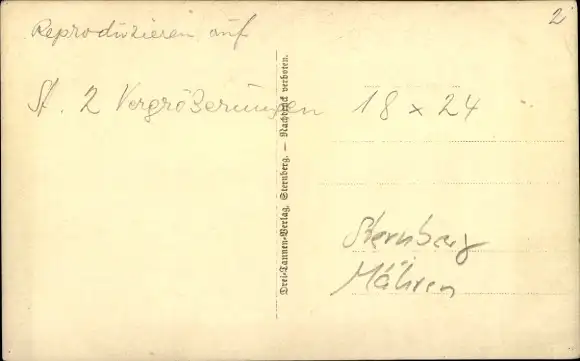 2
Reproduzieren auf
St. 2 Vergrößerungen 18 x 24
Drei-Tannen-Verlag, Sternberg. — Nachdruck verboten.
Sternberg
Mähren